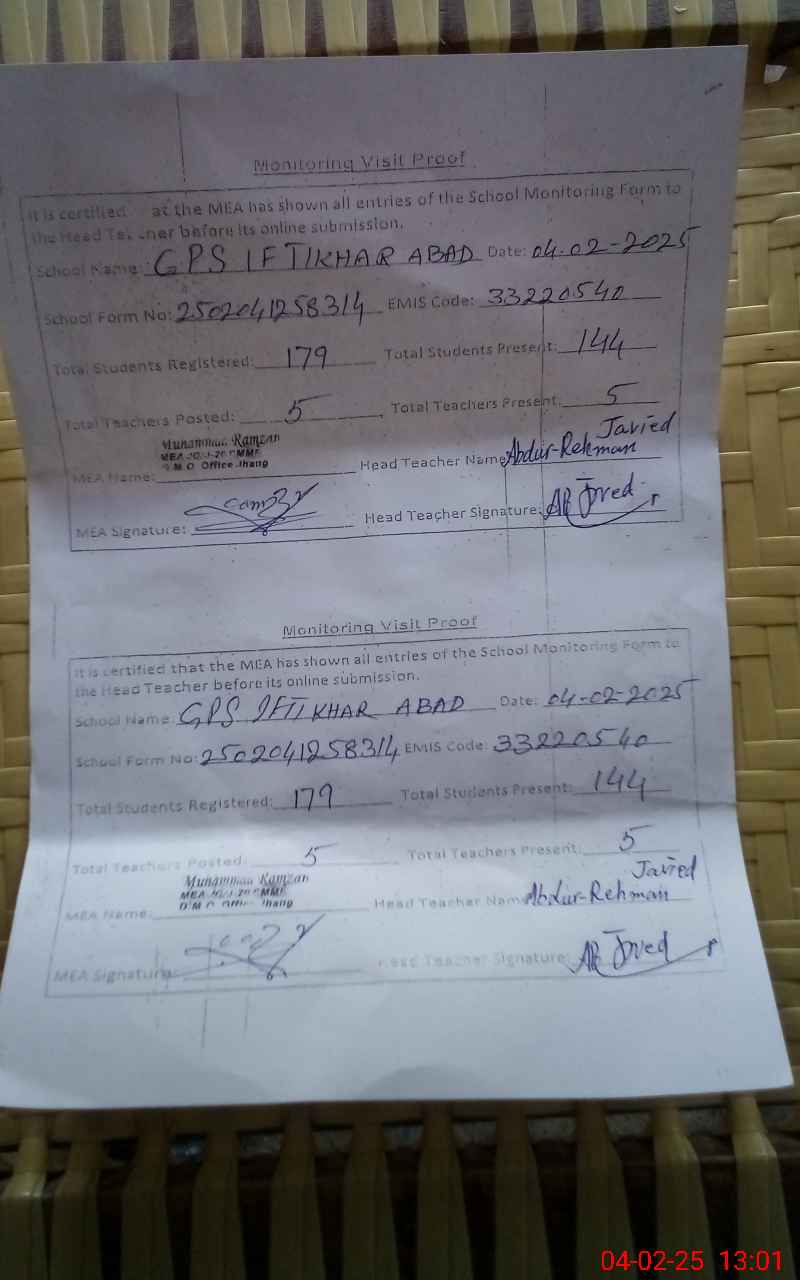 Monitoring Visit Proof
It is certified at the MEA has shown all entries of the School Monitoring Form to
the Head Teacher before its online submission.
School Name: GPS IFTIKHAR ABAD Date: 04-02-2025
School Form No: 2502041258314 EMIS Code: 33220540
Total Students Registered: 179 Total Students Present: 144
Total Teachers Posted: 5 Total Teachers Present: 5
Muhammad Ramzan
Javied
MEA
D.M.O. Office Jhang
MEA Name: Head Teacher Name Abdur-Rehman
MEA Signature: Head Teacher Signature: AR Javed
Monitoring Visit Proof
It is certified that the MEA has shown all entries of the School Monitoring Form to
the Head Teacher before its online submission.
School Name: GPS IFTIKHAR ABAD Date: 04-02-2025
School Form No: 2502041258314 EMIS Code: 33220540
Total Students Registered: 179 Total Students Present: 144
Total Teachers Posted: 5 Total Teachers Present: 5
Muhammad Ramzan
Javied
MEA
D.M.O. Office Jhang
MEA Name: Head Teacher Name Abdur-Rehman
MEA Signature: Head Teacher Signature: AR Javed
04-02-25 13:01